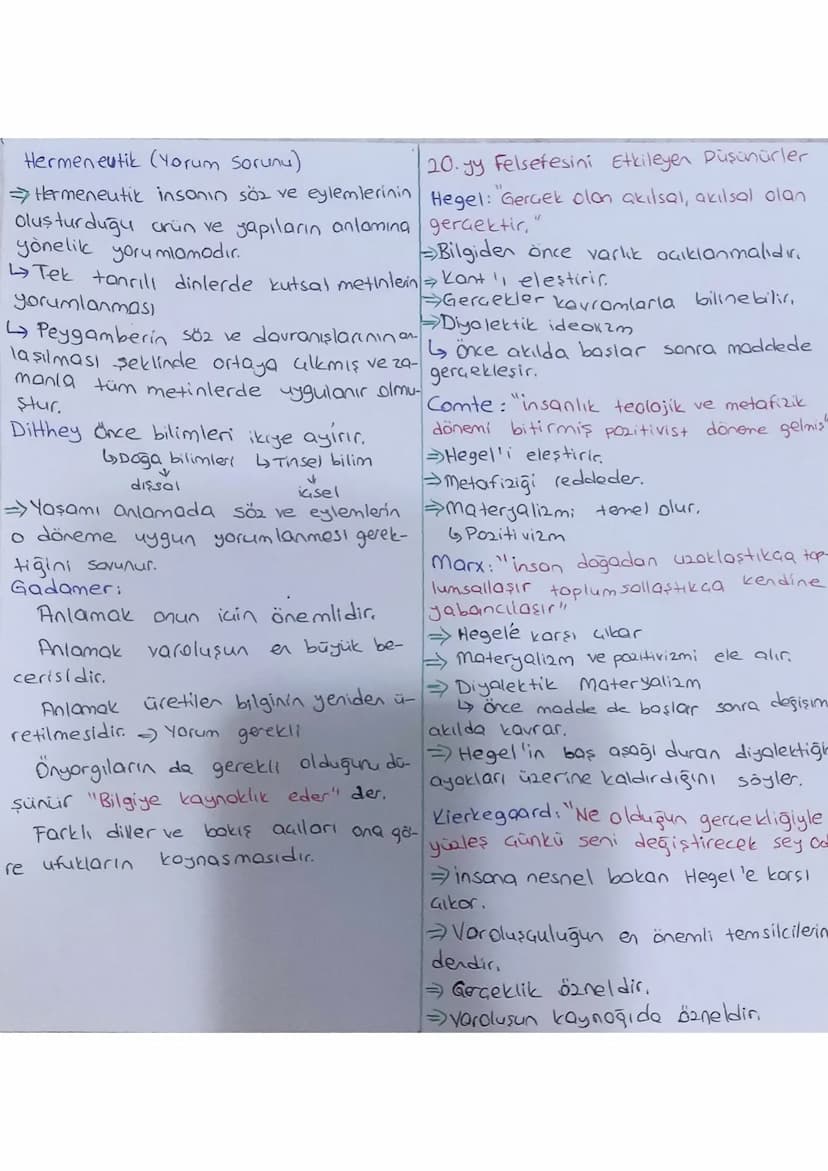 Hermeneutik (Yorum Sorunu)
⇒ Hermeneutik insanın söz ve eylemlerinin
oluşturduğu ürün ve yapıların anlamına
yönelik yorumlamadır.
↳ Tek tanrılı dinlerde kutsal metinlerin
yorumlanması
↳ Peygamberin söz ve davranışlarının an-
laşılması şeklinde ortaya çıkmış ve za-
manla tüm metinlerde uygulanır olmu-
ştur.
Dilthey Önce bilimleri ikiye ayırır.
↳Doğa bilimleri ↳Tinsel bilim
↓ ↓
dışsal içsel
⇒ Yaşamı anlamada söz ve eylemlerin
o döneme uygun yorumlanması gerek-
tiğini savunur.
Gadamer:
Anlamak onun için önemlidir.
Anlamak varoluşun en büyük be-
cerisidir.
Anlamak üretilen bilginin yeniden ü-
retilmesidir. ⇒ Yorum gerekli
Önyargıların da gerekli olduğunu dü-
şünür "Bilgiye kaynaklık eder" der.
Farklı diller ve bakış açıları ona gö-
re ufukların kaynaşmasıdır.
20.yy Felsefesini Etkileyen Düşünürler
Hegel: "Gerçek olan akılsal, akılsal olan
gerçektir."
⇒Bilgiden önce varlık açıklanmalıdır.
⇒ Kant'ı eleştirir.
⇒Gerçekler kavramlarla bilinebilir.
⇒Diyalektik idealizm
↳ Önce akılda başlar sonra maddede
gerçekleşir.
Comte: "insanlık teolojik ve metafizik
dönemi bitirmiş pozitivist döneme gelmiş"
⇒Hegel'i eleştirir.
⇒Metafiziği reddeder.
⇒Materyalizmi temel olur.
↳Pozitivizm
Marx: "insan doğadan uzaklaştıkça top-
lumsallaşır toplumsallaştıkça kendine
yabancılaşır"
⇒ Hegel'e karşı çıkar
⇒ Materyalizm ve pozitivizmi ele alır.
⇒ Diyalektik Materyalizm
↳ Önce madde de başlar sonra değişim
akılda kavrar.
⇒ Hegel'in baş aşağı duran diyalektiği
ayakları üzerine kaldırdığını söyler.
Kierkegaard: "Ne olduğun gerçekliğiyle
yüzleş çünkü seni değiştirecek şey
⇒ insana nesnel bakan Hegel'e karşı
çıkar.
⇒ Varoluşçuluğun en önemli temsilcilerin
dendir.
⇒ Gerçeklik özneldir.
⇒ varoluşun kaynağıda özneldir.